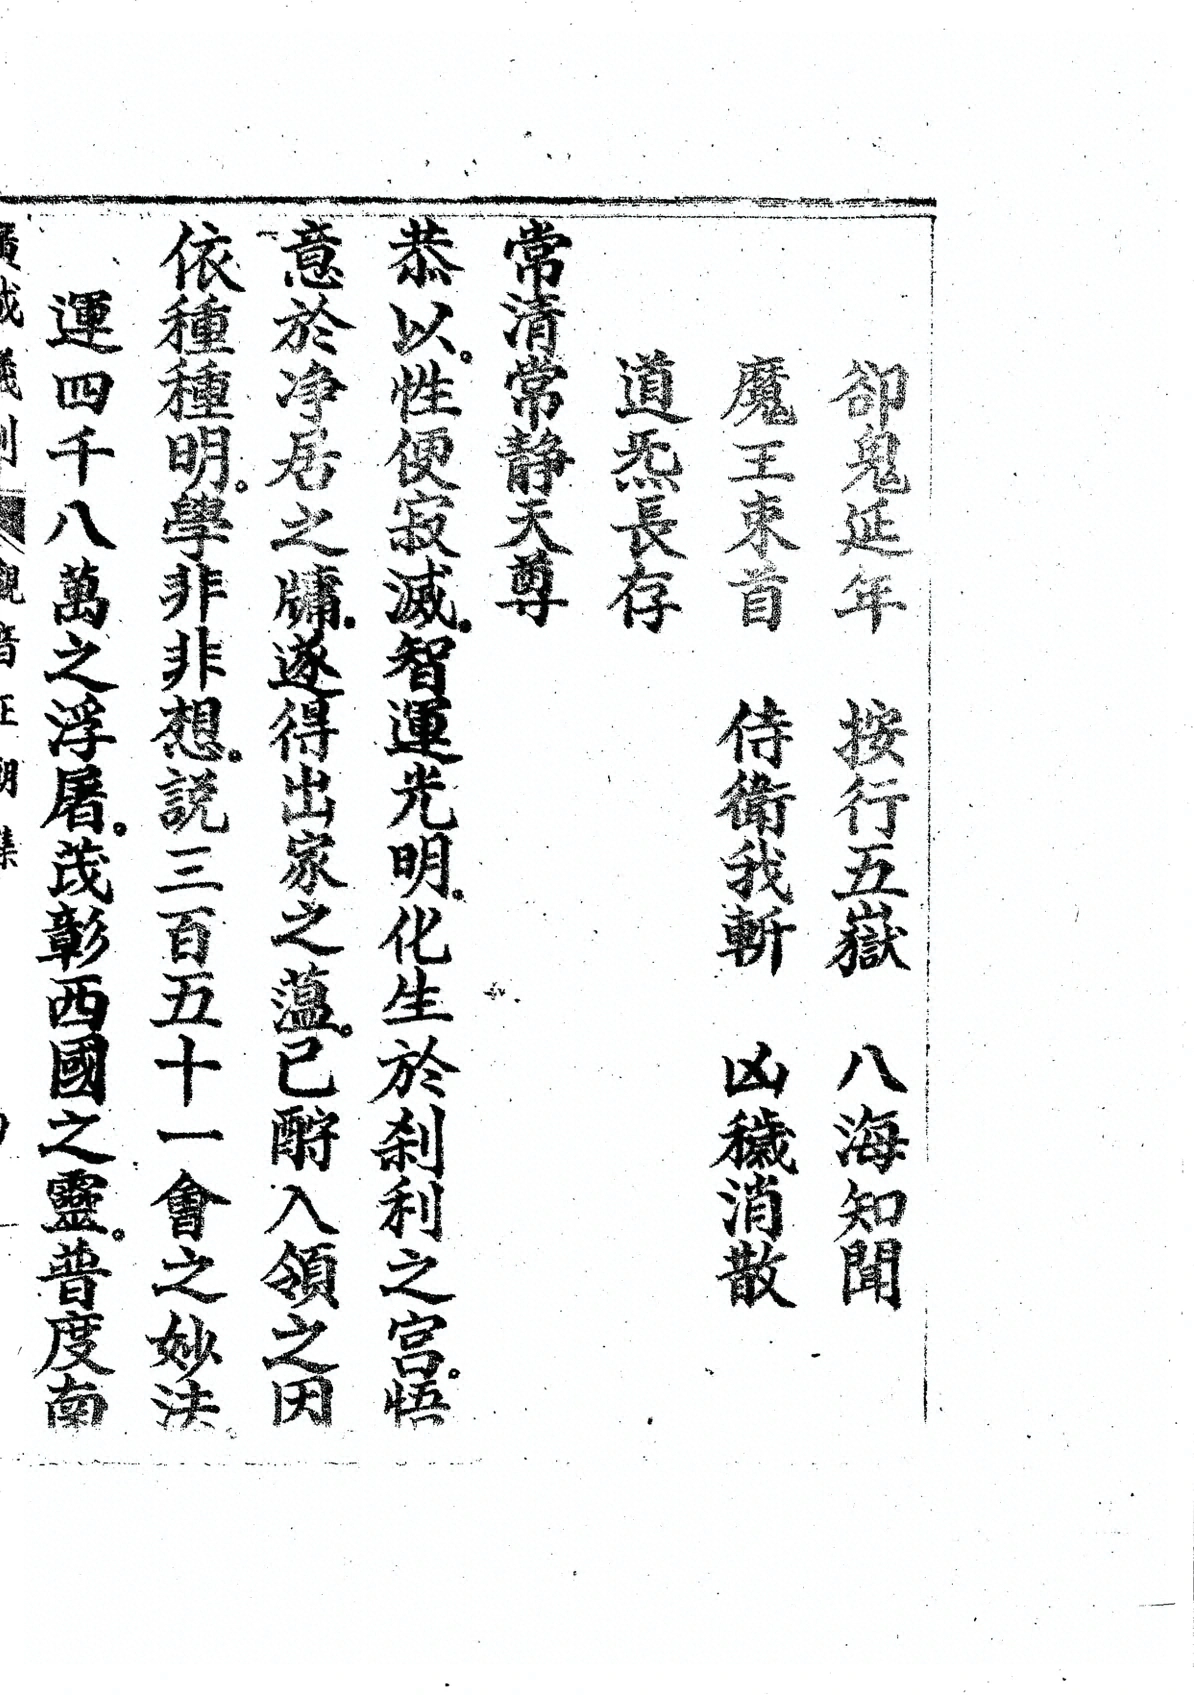 卻鬼延年　按行五嶽　八海知聞
魔王束首　侍衛我軒　凶穢消散
道炁長存
常清常靜天尊
恭以。性便寂滅。智運光明。化生於剎利之宮。悟
意於净居之牗。遂得出家之薀。已酧入領之因
依種種明。學非非想。説三百五十一會之妙法。
運四千八萬之浮屠。茂彰西國之靈。普度南
廣成儀制　觀音正朝集